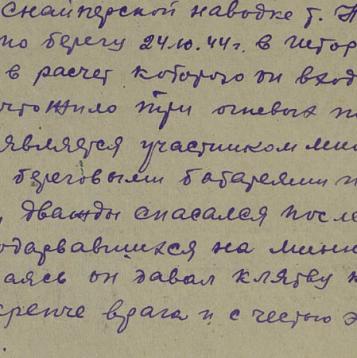 снайперской наводке т. П
по берегу 24.10.44г. в истор
в расчет которого он вход
что жило три огневых т
является участником мин
береговыми батареями п
, дважды спасался после
одарвавшихся на минн
аясь он давал клятву н
крепче врага и с честью э
.